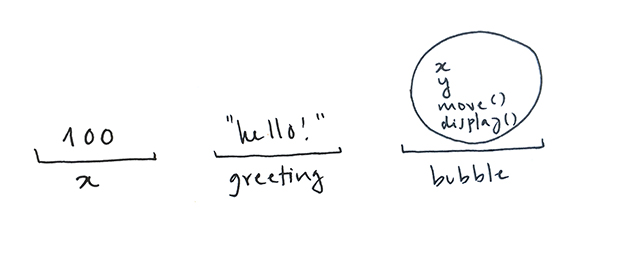 100
x
"hello!"
greeting
x
y
move()
display()
bubble